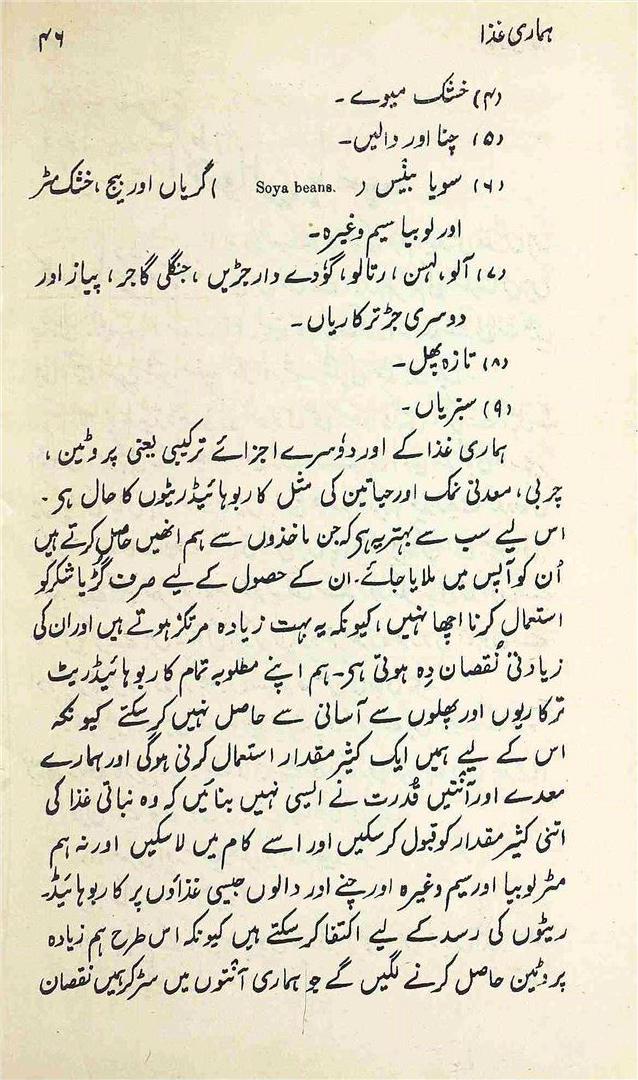 ہماری غذا ۴۶
(۴) خشک میوے۔
(۵) چنا اور دالیں۔
(۶) سویا بینس (Soya beans.) گریاں اور بیج، خشک مٹر
اور لوبیا سیم وغیرہ۔
(۷) آلو، لہسن، رتالو، گودے دار جڑیں، جنگلی گاجر، پیاز اور
دوسری جڑ ترکاریاں۔
(۸) تازہ پھل۔
(۹) سبزیاں۔
ہماری غذا کے اور دوسرے اجزائے ترکیبی یعنی پروٹین،
چربی، معدنی نمک اور حیاتین کی مثل کاربوہائیڈریٹوں کا حال ہی۔
اس لیے سب سے بہتر یہ ہی کہ جن ماخذوں سے ہم انھیں حاصل کرتے ہیں
اُن کو آپس میں ملایا جائے۔ ان کے حصول کے لیے صرف گڑ یا شکر کو
استعمال کرنا اچھا نہیں، کیونکہ یہ بہت زیادہ مرتکز ہوتے ہیں اور ان کی
زیادتی نُقصان دِہ ہوتی ہی۔ ہم اپنے مطلوبہ تمام کاربوہائیڈریٹ
ترکاریوں اور پھلوں سے آسانی سے حاصل نہیں کرسکتے کیونکہ
اس کے لیے ہمیں ایک کثیر مقدار استعمال کرنی ہوگی اور ہمارے
معدے اور آنتیں قُدرت نے ایسی نہیں بنائیں کہ وہ نباتی غذا کی
اتنی کثیر مقدار کو قبول کرسکیں اور اسے کام میں لاسکیں اور نہ ہم
مٹر لوبیا اور سیم وغیرہ اور چنے اور دالوں جیسی غذاؤں پر کاربوہائیڈ۔
ریٹوں کی رسد کے لیے اکتفا کرسکتے ہیں کیونکہ اس طرح ہم زیادہ
پروٹین حاصل کرنے لگیں گے جو ہماری آنتوں میں سڑ کر ہمیں نقصان